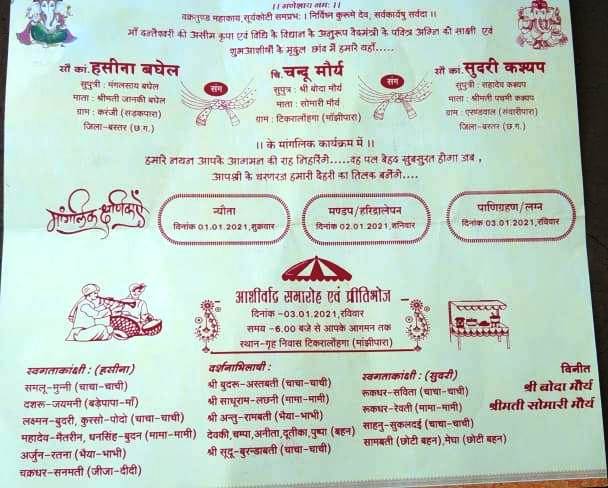 ।। गणेशाय नमः ।।
वक्रतुण्ड महाकाय, सूर्यकोटी समप्रभः । निर्विघ्नं कुरूमे देव, सर्वकार्येषु सर्वदा ।।
माँ दन्तेश्वरी की असीम कृपा एवं विधि के विधान के अनुरूप वेदमंत्रो के पवित्र अग्नि की साक्षी एवं
शुभआशीर्वाद के मृदुल छांव में हमारे यहाँ.....
सौ कां. हसीना बघेल
सुपुत्री : मंगलसाय बघेल
माता : श्रीमती जानकी बघेल
ग्राम : करंजी (सड़कपारा)
जिला-बस्तर (छ.ग.)
संग
चि. चन्दू मौर्य
सुपुत्र : श्री बोदा मौर्य
माता : सोमारी मौर्य
ग्राम : टिकरालोंहगा (माँझीपारा)
संग
सौ कां. सुदरी कश्यप
सुपुत्री : सहादेव कश्यप
माता : श्रीमती पदमी कश्यप
ग्राम : एरण्डवाल (संवारीपारा)
जिला-बस्तर (छ.ग.)
।। के मांगलिक कार्यक्रम में ।।
हमारे नयन आपके आगमन की राह निहारेंगे.....वह पल बेहद खुबसुरत होगा जब ,
आपश्री के चरणरज हमारी देहरी का तिलक बनेंगे....
मांगलिक क्षणिकाएँ
न्यौता
दिनांक 01.01.2021,शुक्रवार
मण्डप/हरिद्रालेपन
दिनांक 02.01.2021,शनिवार
पाणिग्रहण/लग्न
दिनांक 03.01.2021,रविवार
आशीर्वाद समारोह एवं प्रीतिभोज
दिनांक -03.01.2021,रविवार
समय -6.00 बजे से आपके आगमन तक
स्थान-गृह निवास टिकरालोंहगा (मांझीपारा)
स्वगताकांक्षी : (हसीना)
समलू-मुन्नी (चाचा-चाची)
दशरू-जयमनी (बड़ेपापा-माँ)
लक्ष्मन-बुदरी, कुरसो-पोदो (चाचा-चाची)
महादेव-मैतरीन, धनसिंह-बुदन (मामा-मामी)
अर्जुन-रतना (भैया-भाभी)
चक्रधर-सनमती (जीजा-दीदी)
दर्शनाभिलाषी :
श्री बुदरू-अस्तबती (चाचा-चाची)
श्री साधूराम-लछनी (मामा-मामी)
श्री अन्तु-रामबती (भैया-भाभी)
देवकी,चम्पा,अनीता,दूतीका,पुष्पा (बहन)
श्री सूदू-बुरण्डाबती (चाचा-चाची)
स्वगताकांक्षी : (सुदरी)
रूकधर-सविता (चाचा-चाची)
रूकधर-रेवती (मामा-मामी)
साहनु-सुकलदई (चाचा-चाची)
सामबती (छोटी बहन),मेघा (छोटी बहन)
विनीत
श्री बोदा मौर्य
श्रीमती सोमारी मौर्य